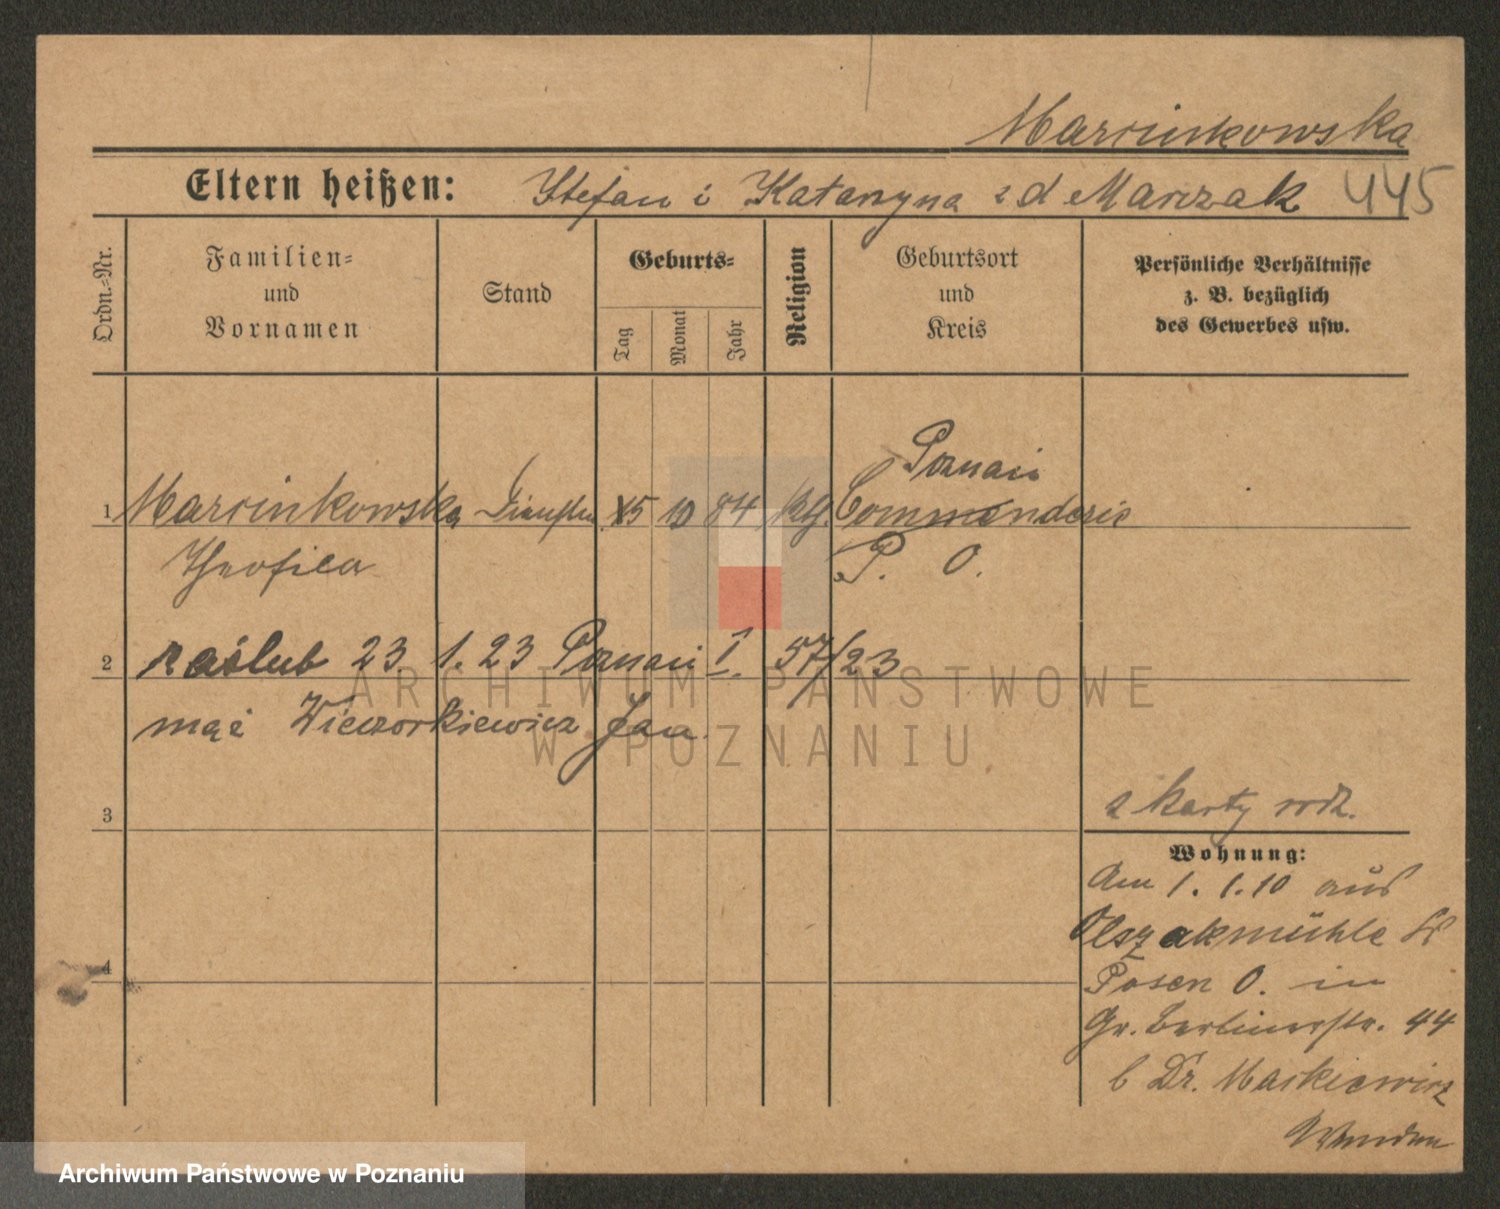 Marcinkowska
Eltern heißen: Stefan i Katarzyna z d Marczak 445
Ordn.-Nr.
Familien-
und
Vornamen
Stand
Geburts-
Tag
Monat
Jahr
Religion
Geburtsort
und
Kreis
Persönliche Verhältnisse
z. B. bezüglich
des Gewerbes usw.
Poznań
1 Marcinkowska 15 10 84 kg. Commenderie
Theofila P. O.
2 zaślub 23 1. 23 Poznań I. 57/23
mąż Wieczorkiewicz Jan.
3
z karty rodz.
Wohnung:
Am 1. 1. 10 aus
Olszakmühle Kr
4
Posen O. in
Gr. Berlinerstr. 44
b Dr. Markiewicz
Wenden
ARCHIWUM PAŃSTWOWE
W POZNANIU
Archiwum Państwowe w Poznaniu